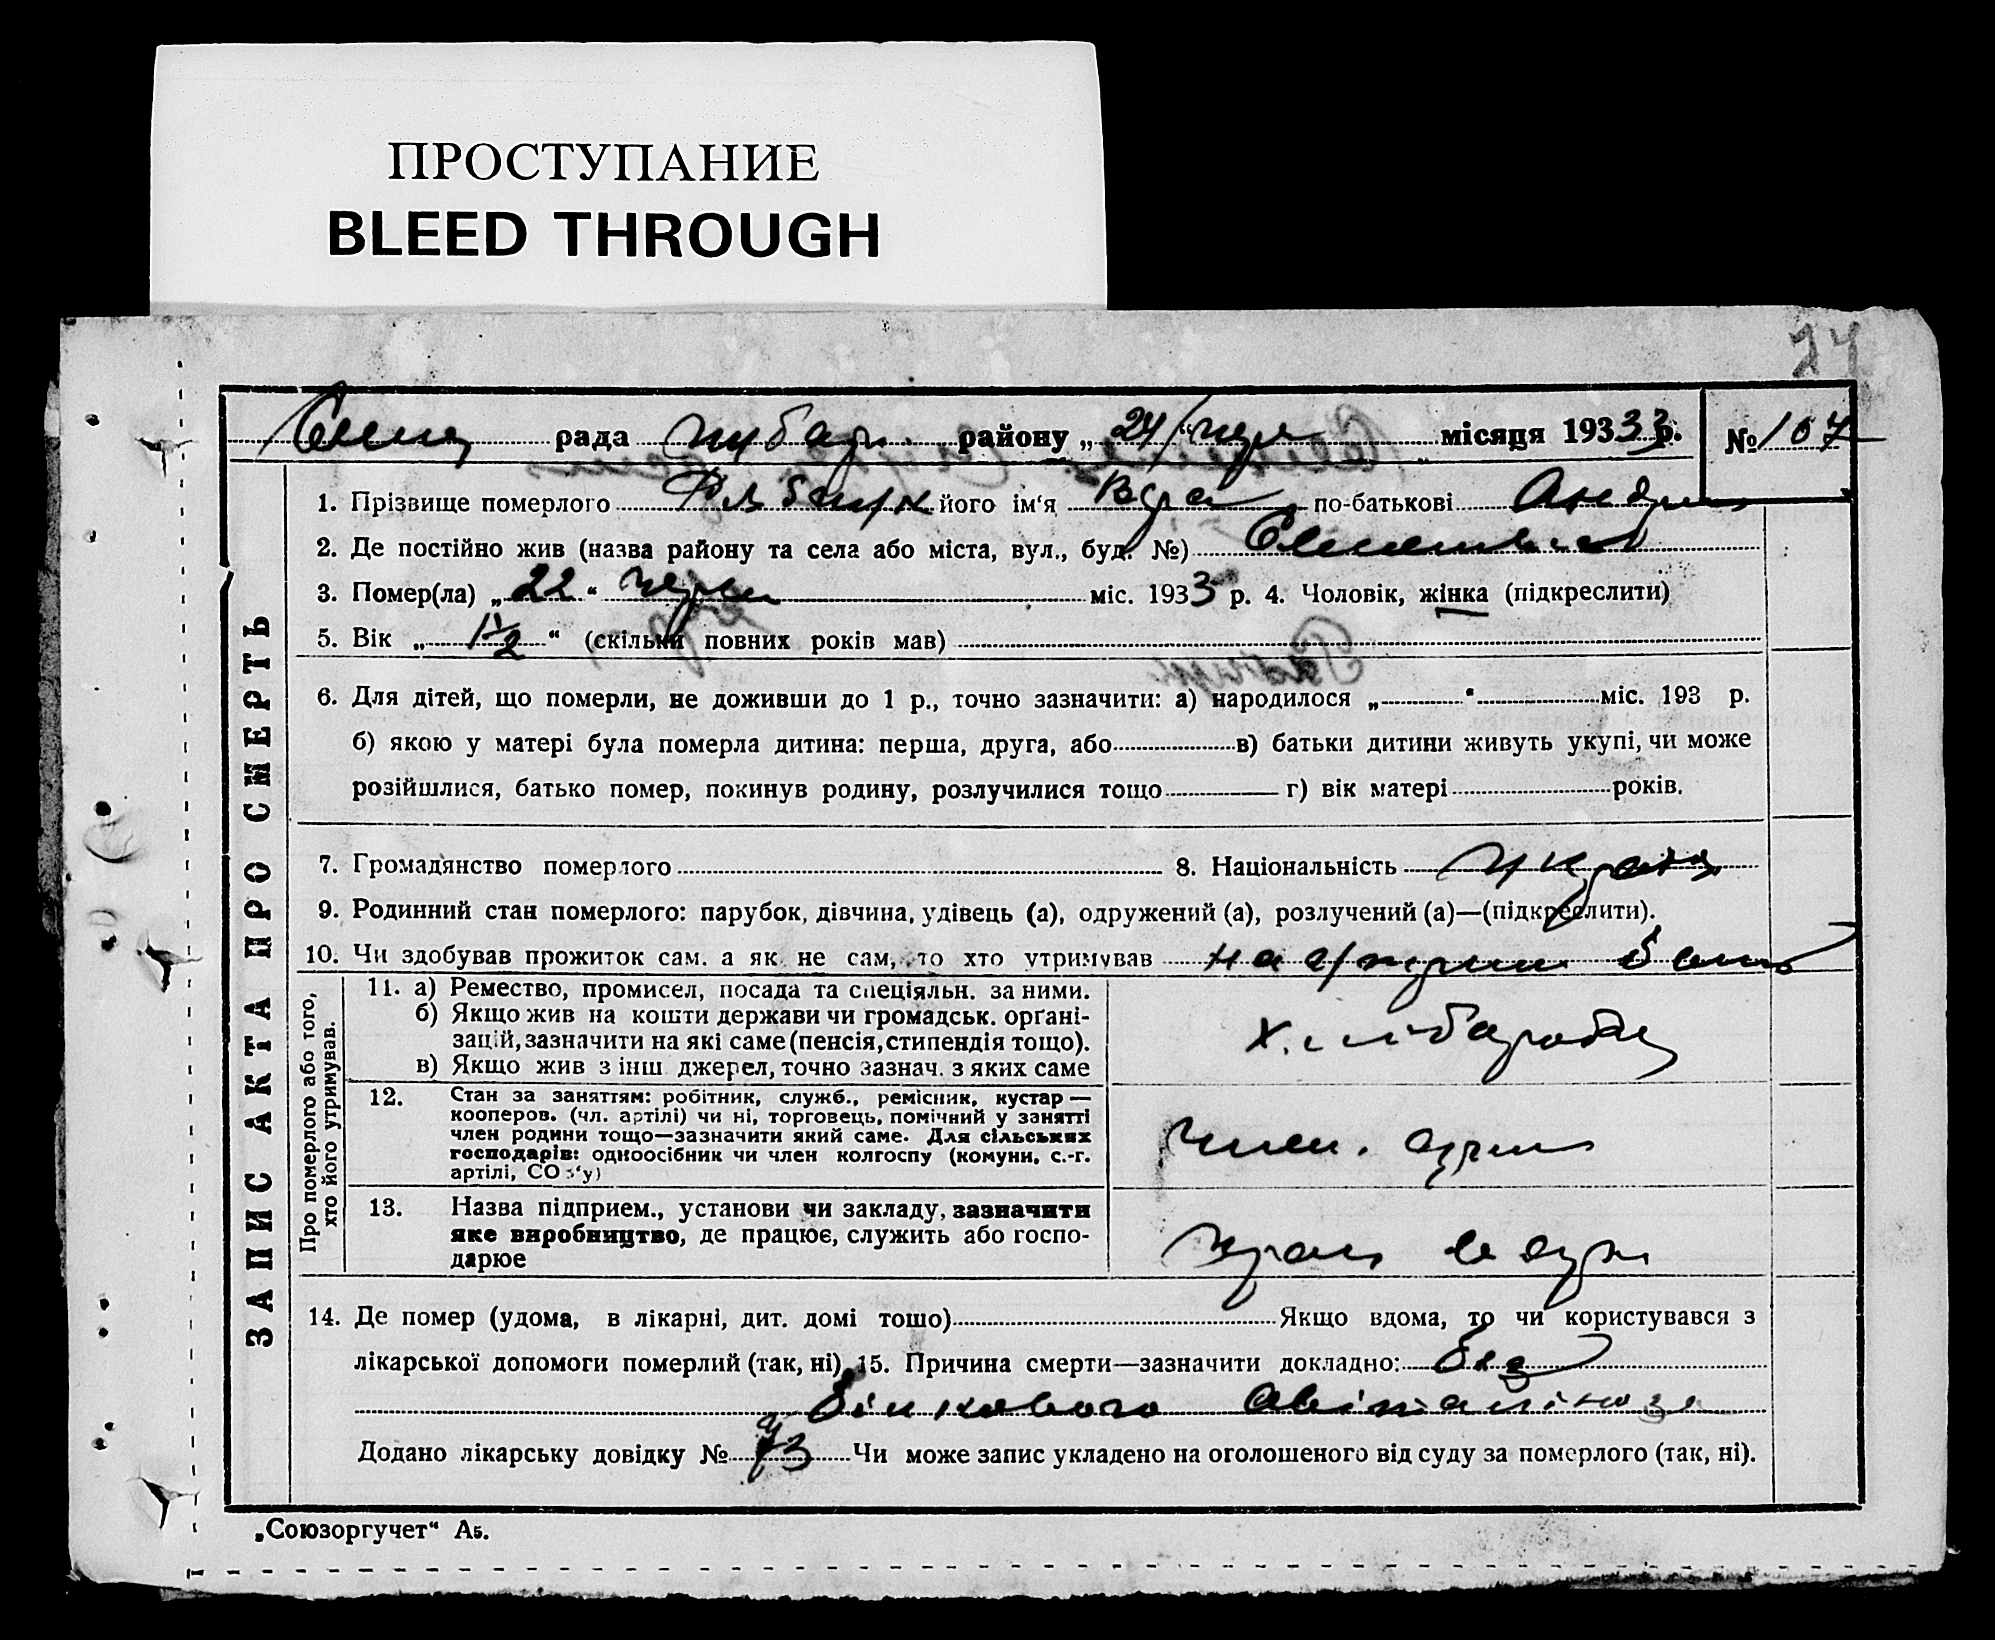 ПРОСТУПАНИЕ
BLEED THROUGH
24
рада района району „ 24 “ черв місяця 193 33 р. № 107
1. Прізвище померлого його ім‘я Вєра по-батькові Андр
2. Де постійно жив (назва району та села або міста, вул., буд. №)
3. Помер(ла) „ 22 “ черв міс. 1933 р. 4. Чоловік, жінка (підкреслити)
5. Вік „ 1 1/2 “ (скільки повних років мав)
6. Для дітей, що померли, не доживши до 1 р., точно зазначити: а) народилося „ “ міс. 193 р.
б) якою у матері була померла дитина: перша, друга, або в) батьки дитини живуть укупі, чи може
розійшлися, батько помер, покинув родину, розлучилися тощо г) вік матері років.
7. Громадянство померлого 8. Національність україн
9. Родинний стан померлого: парубок, дівчина, удівець (а), одружений (а), розлучений (а)—(підкреслити).
10. Чи здобував прожиток сам. а як не сам, то хто утримував на утрим бать
ЗАПИС АКТА ПРО СМЕРТЬ
Про померлого або того,
хто його утримував.
11. а) Ремество, промисел, посада та спеціяльн. за ними.
б) Якщо жив на кошти держави чи громадськ. орґані-
зацій, зазначити на які саме (пенсія, стипендія тощо).
в) Якщо жив з інш джерел, точно зазнач. з яких саме
12. Стан за заняттям: робітник, служб., ремісник, кустар —
кооперов. (чл. артілі) чи ні, торговець, помічний у занятті
член родини тощо—зазначити який саме. Для сільських
господарів: одноосібник чи член колгоспу (комуни, с.-г.
артілі, СО з‘у)
член. артил
13. Назва підприєм., установи чи закладу, зазначити
яке виробництво, де працює, служить або госпо-
дарює
14. Де помер (удома, в лікарні, дит. домі тощо) Якщо вдома, то чи користувався з
лікарської допомоги померлий (так, ні) 15. Причина смерти—зазначити докладно: без
білкового авітамінозу
Додано лікарську довідку № 73 Чи може запис укладено на оголошеного від суду за померлого (так, ні).
„Союзоргучет“ А5.